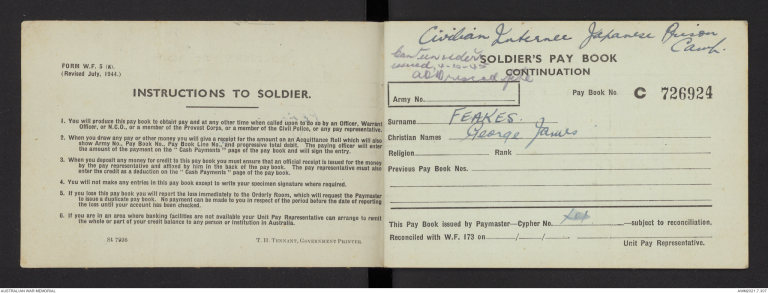 FORM W.F. 5 (K).
(Revised July, 1944.)
INSTRUCTIONS TO SOLDIER.
1. You will produce this pay book to obtain pay and at any other time when called upon to do so by an Officer, Warrant
Officer, or N.C.O., or a member of the Provost Corps, or a member of the Civil Police, or any pay representative.
2. When you draw any pay or other money you will give a receipt for the amount on an Acquittance Roll which will also
show Army No., Pay Book No., Pay Book Line No., and progressive total debit. The paying officer will enter
the amount of the payment on the "Cash Payments" page of the pay book and will sign the entry.
3. When you deposit any money for credit to this pay book you must ensure that an official receipt is issued for the money
by the pay representative and affixed by him in the back of the pay book. The pay representative must also
enter the credit as a deduction on the "Cash Payments" page of the book.
4. You will not make any entries in this pay book except to write your specimen signature where required.
5. If you lose this pay book you will report the loss immediately to the Orderly Room, which will request the Paymaster
to issue a duplicate pay book. No payment can be made to you in respect of the period before the date of reporting
the loss until your account has been checked.
6. If you are in an area where banking facilities are not available your Unit Pay Representative can arrange to remit
the whole or part of your credit balance to any person or institution in Australia.
St 7926
T. H. TENNANT, GOVERNMENT PRINTER.
Civilian Internee Japanese Prison
Camp.
issued
SOLDIER'S PAY BOOK
CONTINUATION
Army No.
Pay Book No. C 726924
Surname FEAKES.
Christian Names George James
Religion Rank
Previous Pay Book Nos.
This Pay Book issued by Paymaster—Cypher No. —subject to reconciliation.
Reconciled with W.F. 173 on / /
Unit Pay Representative.
AUSTRALIAN WAR MEMORIAL
AWM2021.7.107